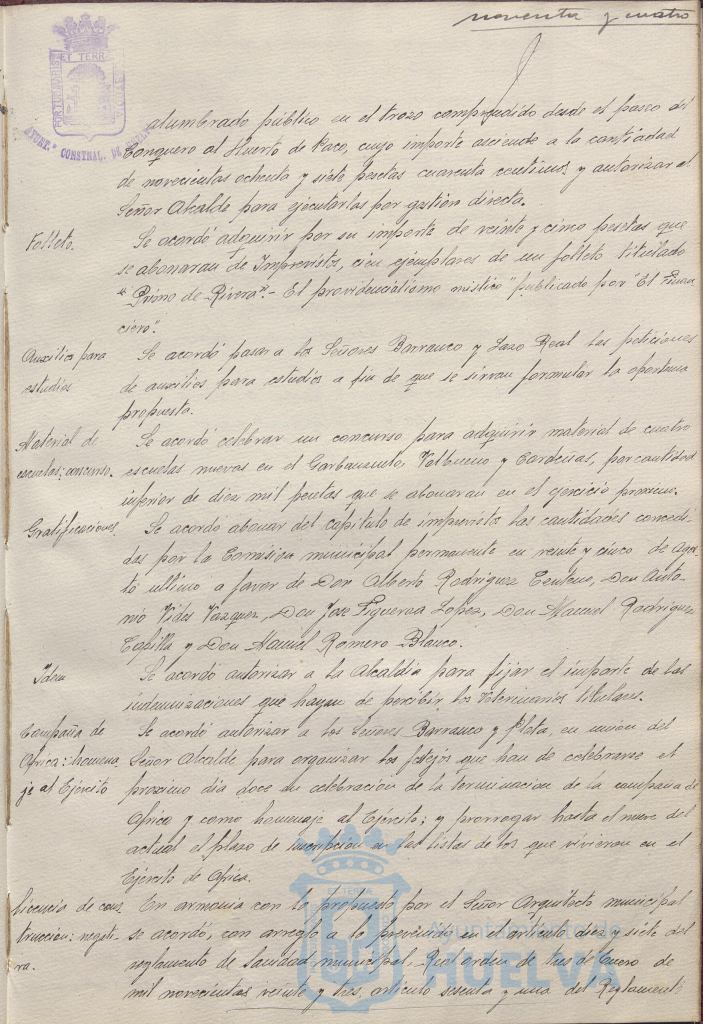 noventa y cuatro
PORTUS MARIS ET TERRÆ CUSTODIA
AYUNT.º CONSTNAL. DE HUELVA
alumbrado público en el trozo comprendido desde el paseo del
Conquero al Huerto de Paco, cuyo importe asciende a la cantidad
de novecientas ochenta y siete pesetas cuarenta centimos y autorizar al
Señor Alcalde para ejecutarlas por gestión directa.
Folleto.
Se acordó adquirir por su importe de veinte y cinco pesetas que
se abonaran de Imprevistos, cien ejemplares de un folleto titulado
"Primo de Rivera".- El providencialismo mistico" publicado por "El Finan
ciero".
Auxilios para
estudios
Se acordó pasar a los Señores Barranco y Lazo Real las peticiones
de auxilios para estudios a fin de que se sirvan formular la oportuna
propuesta.
Material de
escuelas: concurso.
Se acordó celebrar un concurso para adquirir material de cuatro
escuelas nuevas en el Garbanzuelo, Valbueno y Cardeñas, por cantidad
inferior de diez mil pesetas que se abonaran en el ejercicio proximo.
Gratificaciones.
Se acordo abonar del capitulo de imprevistos las cantidades concedi
das por la Comisión municipal permanente en veinte y cinco de Agos
to ultimo a favor de Don Alberto Rodriguez Centeno, Don Anto
nio Vides Vazquez, Don Jose Figueroa Lopez, Don Manuel Rodriguez
Capilla y Don Manuel Romero Blanco.
Idem
Se acordó autorizar a la Alcaldia para fijar el importe de las
indemnizaciones que hayan de percibir los Veterinarios titulares.
Campaña de
Africa: homena
je al Ejército
Se acordó autorizar a los Señores Barranco y Plata, en union del
Señor Alcalde para organizar los festejos que han de celebrarse el
proximo dia doce en celebración de la terminación de la campaña de
Africa y como homenaje al Ejército; y prorrogar hasta el nueve del
actual el plazo de inscripción en las listas de los que vivieran en el
Ejército de Africa.
Licencia de cons
truccion: negati
va.
En armonia con lo propuesto por el Señor Arquitecto municipal
se acordó, con arreglo a lo prevenido en el articulo diez y siete del
reglamento de Sanidad municipal, Real orden de tres de Enero de
mil novecientos veinte y tres, articulo sesenta y uno del Reglamento
Ayuntamiento de
HUELVA